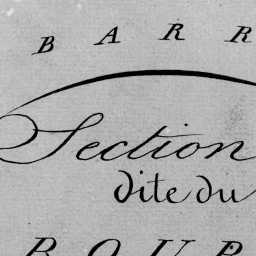 BARR
Section
dite du
ROUR